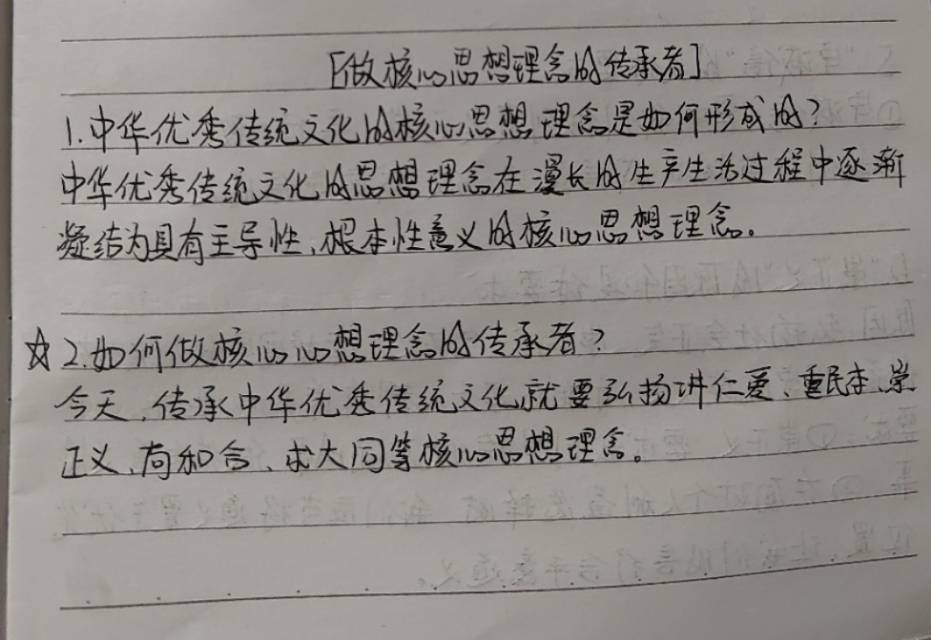 [做核心思想理念的传承者]
1.中华优秀传统文化的核心思想理念是如何形成的?
中华优秀传统文化的思想理念在漫长的生产生活过程中逐渐
凝结为具有主导性、根本性意义的核心思想理念。
☆2.如何做核心心想理念的传承者?
今天,传承中华优秀传统文化就要弘扬讲仁爱、重民本、崇
正义、尚和合、求大同等核心思想理念。